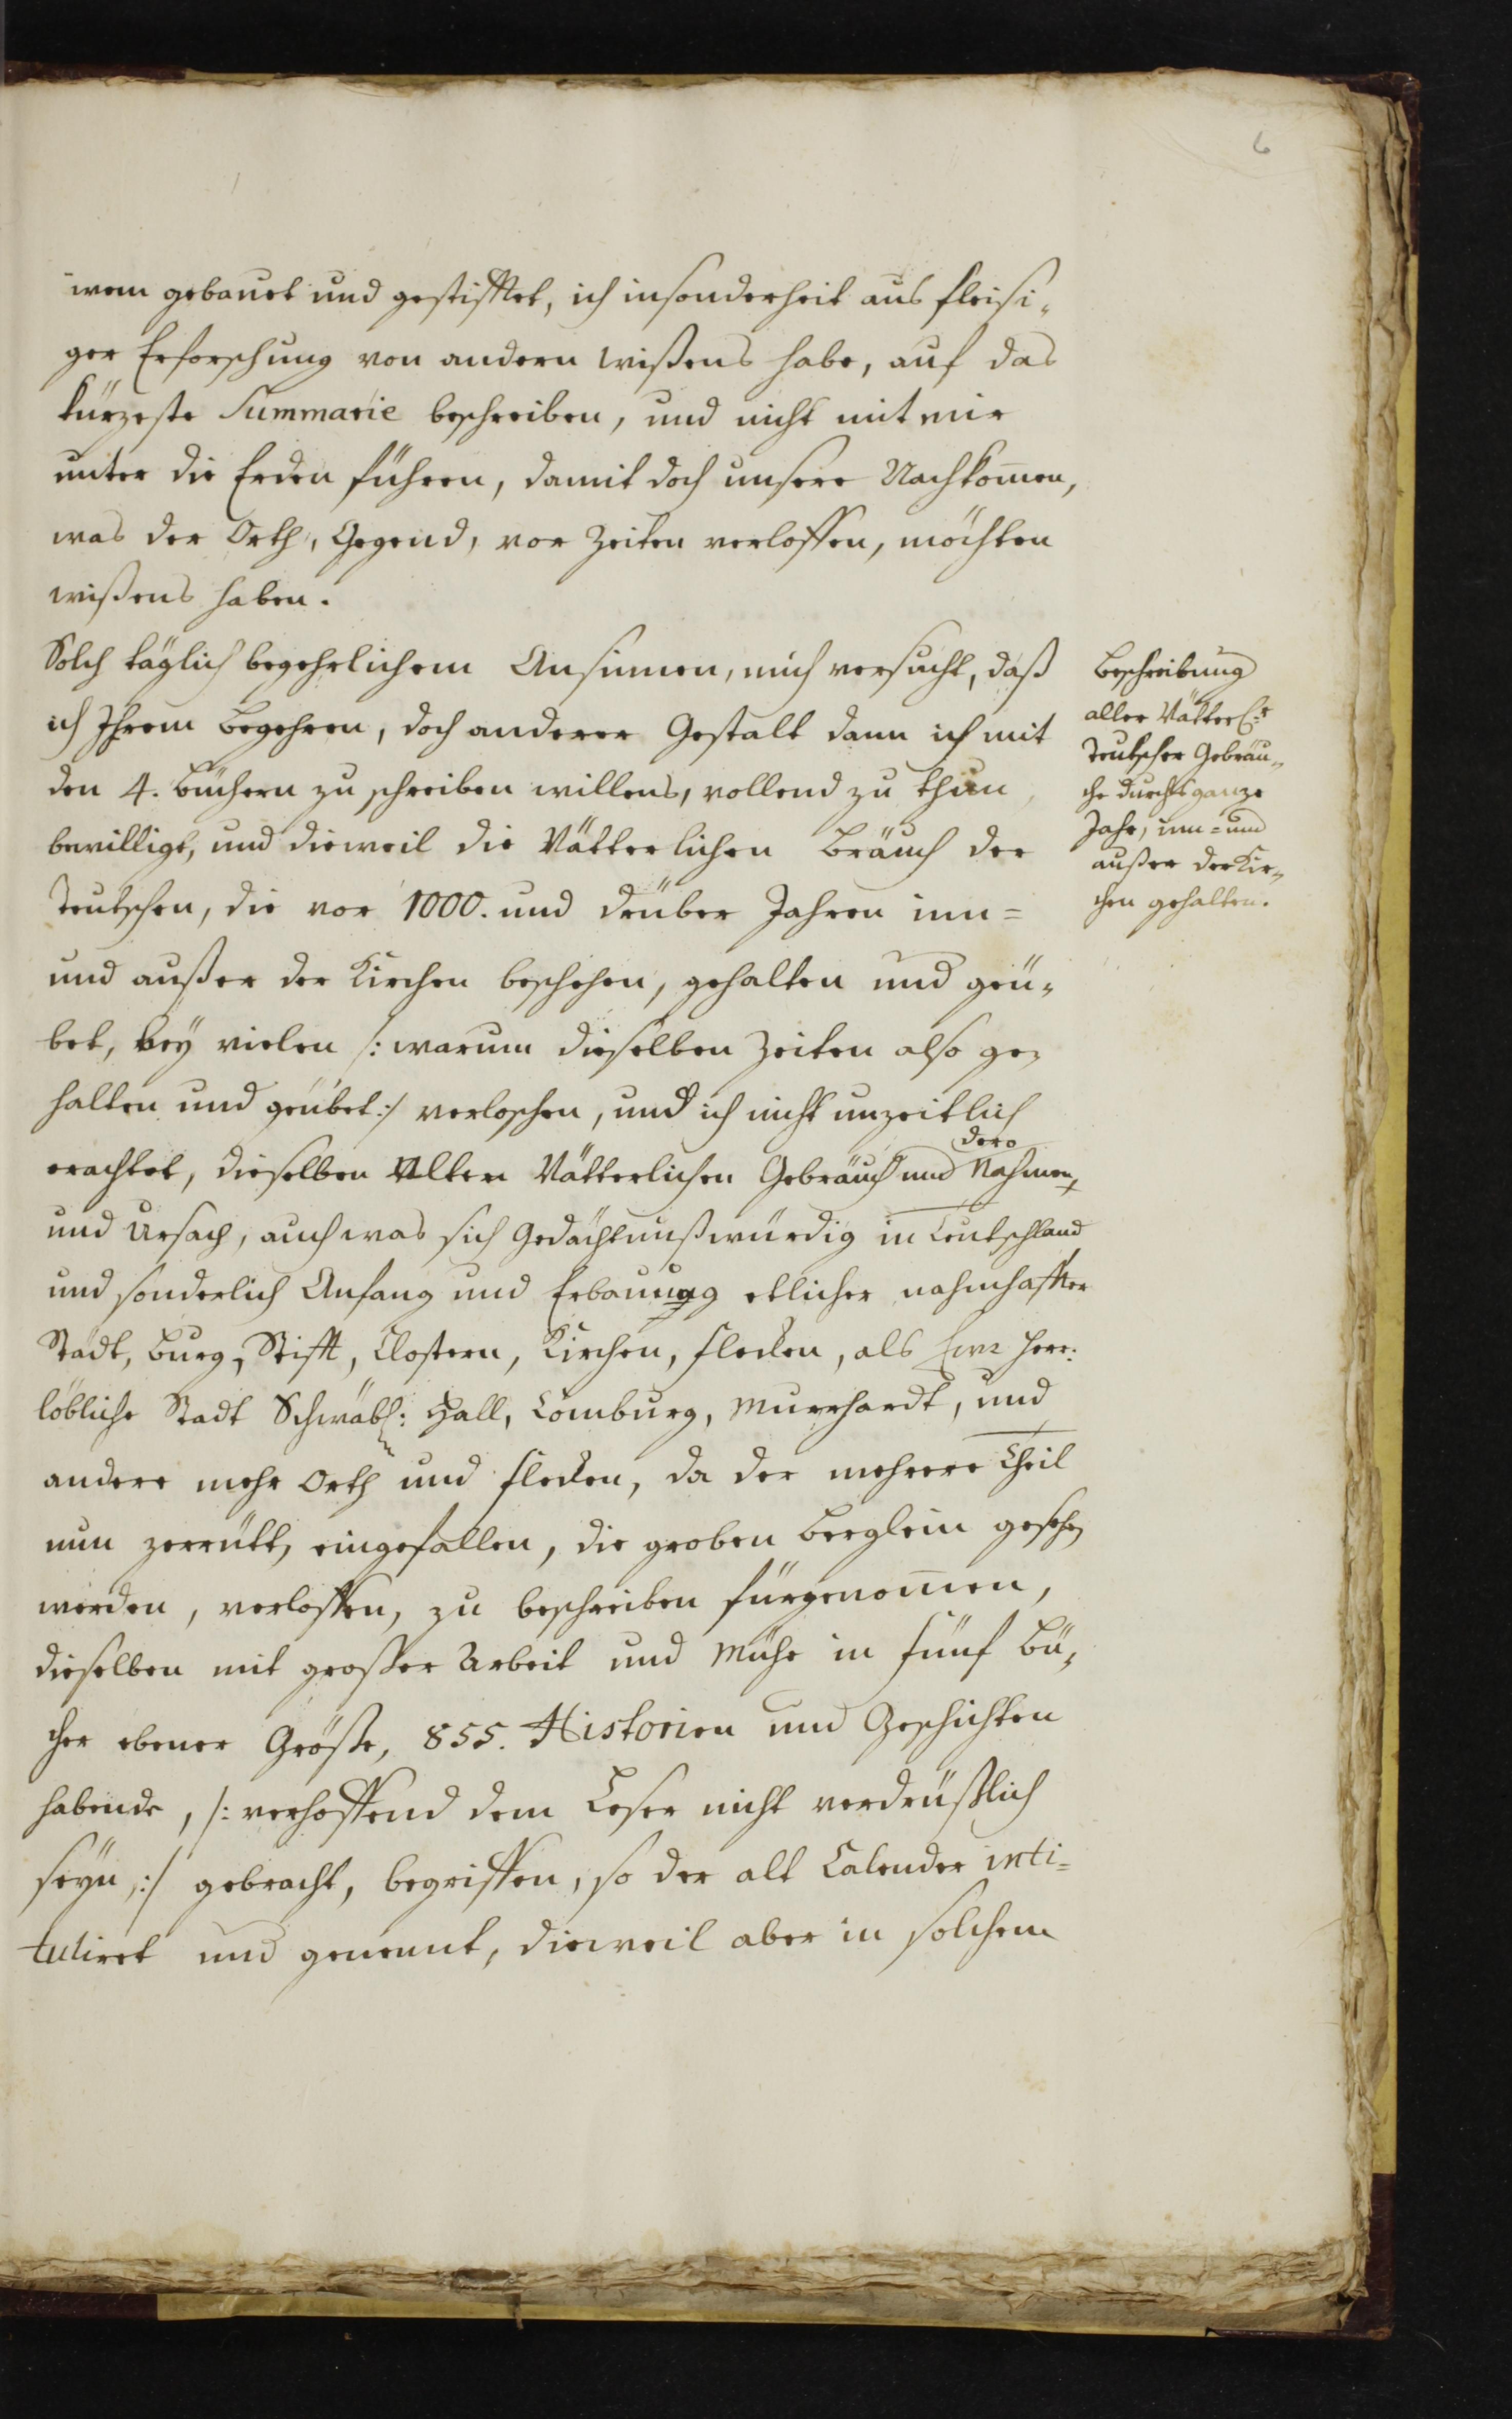 6
wem gebauet und gestifftet, ich insonderheit aus fleisi„
ger Erforschung von andern wißens habe, auf das
kürzeste Summarie beschreiben, und nicht mit mir
unter die Erden führen, damit doch unsere Nachkom̄en,
was der Orth, Gegend, vor Zeiten verloffen, möchten
wißens haben.
Solch täglich begehrlichem Ansinnen, mich versucht, daß
ich Ihrem Begehren, doch anderer Gestalt dann ich mit
den 4. Büchern zu schreiben willens, vollend zu thun
bewilligt, und dieweil die Vätterlichen Bräuch der
Teutschen, die vor 1000. und drüber Jahren inn=
und außer der Kirchen beschehen, gehalten und geü„
bet, bey vielen /: warum dieselben Zeiten also ge„
halten und geübet :/ verloschen, und ich nicht unzeitlich
erachtet, dieselben Alten Vätterlichen Gebräuch und dero Nahmen,
und Ursach, auch was sich Gedächtnußwürdig in Teutschland
und sonderlich Anfang und Erbauung etlicher nahmhaffter
Städt, Burg, Stifft, Clostern, Kirchen, Flecken, als Herr:
löbliche Stadt Schwäb: Hall, Comburg, Murrhardt, und
andere mehr Orth und Flecken, da der mehrere Theil
nun zerrütt, eingefallen, die groben Berglein gesehen
werden, verloffen, zu beschreiben fürgenom̄en,
dieselben mit großer Arbeit und Mühe in fünf Bü„
cher ebener Größe, 855. Historien und Geschichten
habende, /: verhoffend dem Leser nicht verdrüßlich
seyn, :/ gebracht, begriffen, so der alt Calender inti=
tuliret und genennt, dieweil aber in solchem
Beschreibung
aller Vätterl:r
Teutscher Gebräu„
che durchs ganze
Jahr, inn= und
außer der Kir„
chen gehalten.